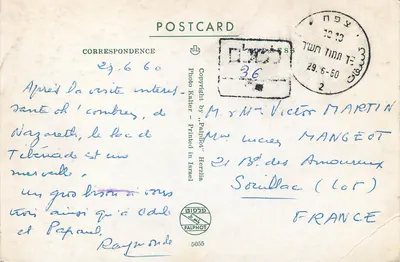 POSTCARD
CORRESPONDENCE
29.6.60
Après la visite intéres-
sante d'ombres, de
Nazareth, le lac de
Tibériade est un
merveille.
un gros bison à vous
trois ainsi qu'à Odile
et Papaul.
Raymonde
Copyright by "Palphot" Herzlia
Photo Kaller - Printed in Israel
36
צפת
29.6.60
2
M. & Me Victor MARTIN
Me Lucien MANGEOT
21 Bd. des Amoureux
Souillac (Lot)
FRANCE
פלפוט
PALPHOT
5055